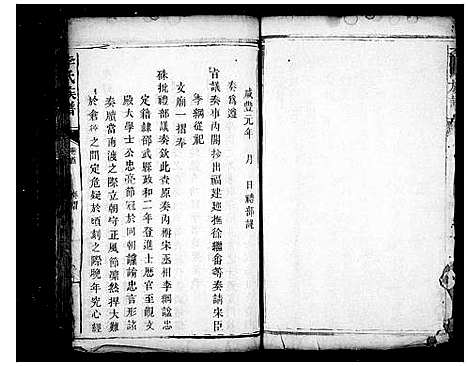 咸豐元年 月 日禮部議
奏爲遵
旨議奏事內閣抄出福建巡撫徐繼畬等奏請宋臣
李綱從祀
文廟一摺奏
硃批禮部議奏欽此查原奏內稱宋丞相李綱諡忠
定籍隸邵武縣政和二年登進士歷官至觀文
殿大學士公忠亮節冠於同朝讜論忠言形諸
奏牘當南渡之際立朝守正風節凜然捍大難
於倉 之間定危疑於頃刻之際晚年究心經
氏族譜